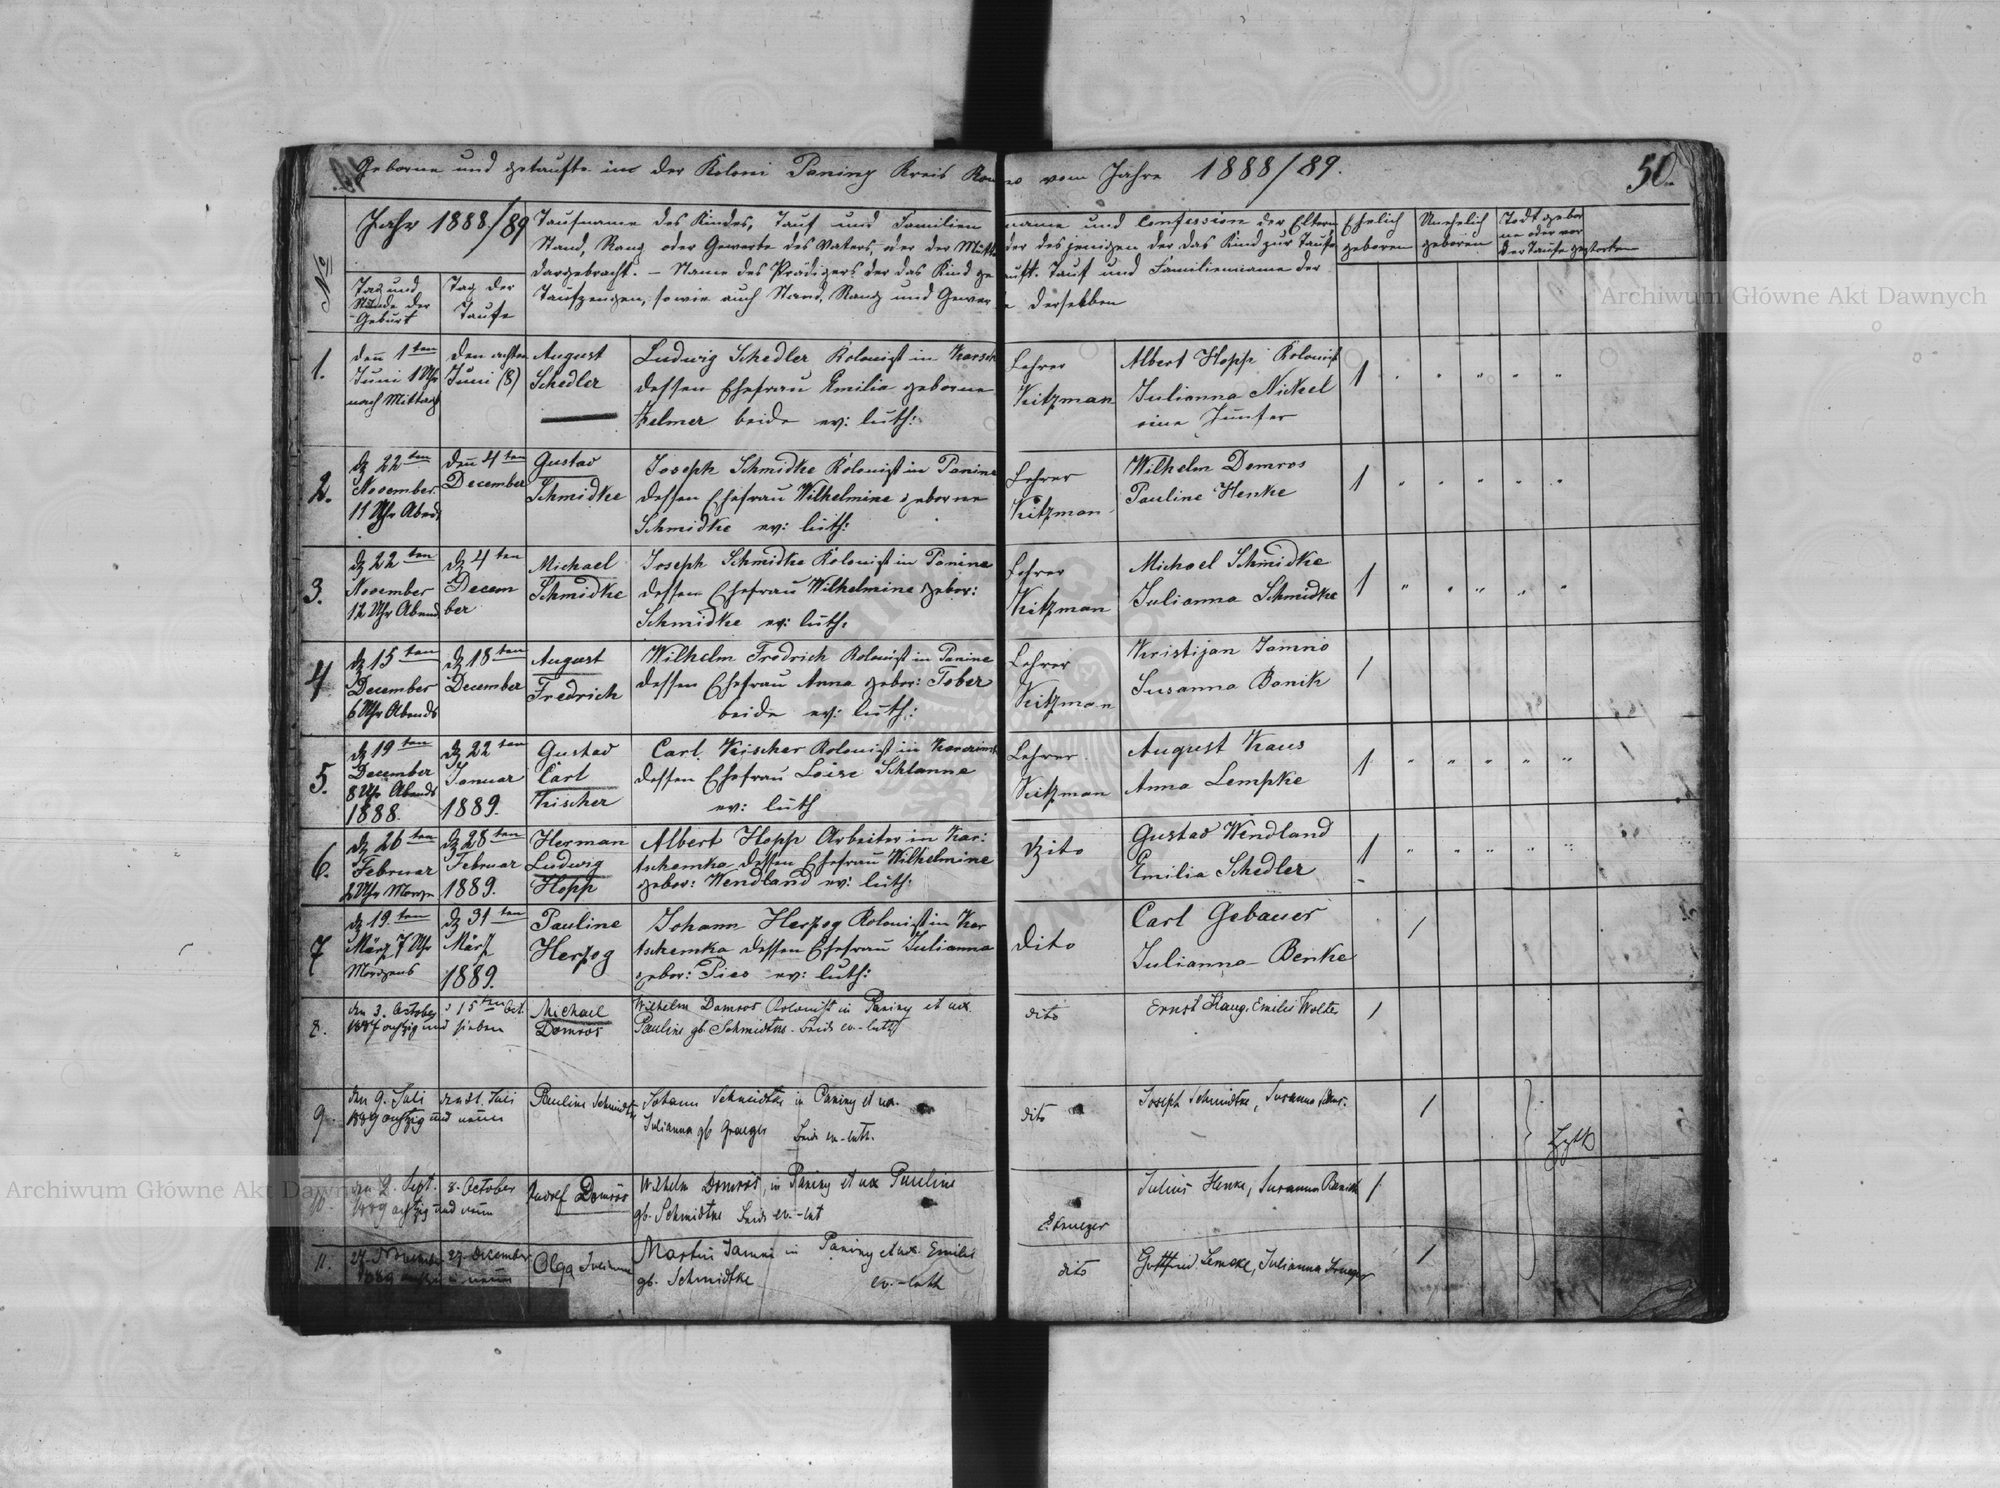 Geborne und getaufte in der Koloni Paniny Kreis vom Jahre 1888/89.
50.
No
Jahr 1888/89
Tag und Stunde der Geburt
Tag der Taufe
Taufname des Kindes, Tauf und Familien name und Confession der Eltern
Stand, Rang oder Gewerbe des Vaters, oder der Mutter oder desjenigen der das Kind zur Taufe
dargebracht. – Name des Prädigers der das Kind getauft. Tauf und Familienname der
Taufzeugen, sowie auch Stand, Rang und Gewerbe derselben
Ehelich geboren
Unehelich geboren
Todt gebor
ne oder vor
der Taufe gestorben
1.
den 1ten
Juni 1 Uhr
nach Mittag
den achten
Juni (8)
August
Schedler
Ludwig Schedler Kolonist in
dessen Ehefrau Emilia geborne
Kelmer beide ev: luth:
Lehrer
Kitzman
Albert Hopp Kolonist
Julianna Nickel
eine Junfer
1
2.
d 22ten
November
11 Uhr Abends
den 4ten
December
Gustav
Schmidke
Joseph Schmidke Kolonist in Panine
dessen Ehefrau Wilhelmine geborne
Schmidke ev: luth:
Lehrer
Kitzman
Wilhelm Domros
Pauline Henke
1
3.
d 22ten
November
12 Uhr Abend
d 4ten
Decem
ber
Michael
Schmidke
Joseph Schmidke Kolonist in Panine
dessen Ehefrau Wilhelmine gebor:
Schmidke ev: luth:
Lehrer
Kitzman
Michael Schmidke
Julianna Schmidke
1
4
d 15ten
December
6 Uhr Abends
d 18ten
December
August
Fredrich
Wilhelm Fredrich Kolonist in Panine
dessen Ehefrau Anna gebor: Tober
beide ev: luth:
Lehrer
Kitzman
Kristijan Jamno
Susanna Banik
1
5.
d 19ten
December
8 Uhr Abends
1888.
d 22ten
Januar
1889.
Gustav
Carl
Kischer
Carl Kischer Kolonist in
dessen Ehefrau Loise Schlanne
ev: luth
Lehrer
Kitzman
August Kaus
Anna Lempke
1
6.
d 26ten
Februar
2 Uhr Morge
d 28ten
Februar
1889.
Herman
Ludwig
Hopp
Albert Hopp Arbeiter in Kar:
tschemka dessen Ehefrau Wilhelmine
gebor: Wendland ev: luth:
Dito
Gustav Wendland
Emilia Schedler
1
7
d 19.ten
März 7 Uhr
Morgens
d 31ten
März
1889.
Pauline
Herzog
Johann Herzog Kolonist in Kar
tschemka dessen Ehefrau Julianna
gebor: Pies ev: luth:
Dito
Carl Gebauer
Julianna Benke
1
8.
den 3. October
15ten Oct.
1887 achtzig und sieben
Michael
Domros
Wilhelm Domros Kolonist in Paniny et ux.
Pauline gb. Schmidtke. Beide ev-luth
dito
Ernst Haug, Emilie Wolter
1
9.
den 9. Juli
den 21. Juli
1889 achtzig und neun
Pauline Schmidtke
Johann Schmidtke in Paniny et ux.
Julianna gb Graeger Beide ev-luth.
dito
Joseph Schmidtke, Susanna
1
10.
den 2. Sept.
8. October
1889 achtzig und neun
Rudolf Domros
Wilhelm Domros, in Paniny et ux Pauline
gb. Schmidtke Beide ev.-lut
E. Krueger
Julius Henke, Susanna Banik
1
11.
27. November
27. December
Olga Julianna
Martin Jamni in Paniny et ux. Emilie
gb. Schmidtke ev.-luth
dito
Gottfried Lemcke, Julianna Krueger
1
Archiwum Główne Akt Dawnych
Archiwum Główne Akt Dawnych